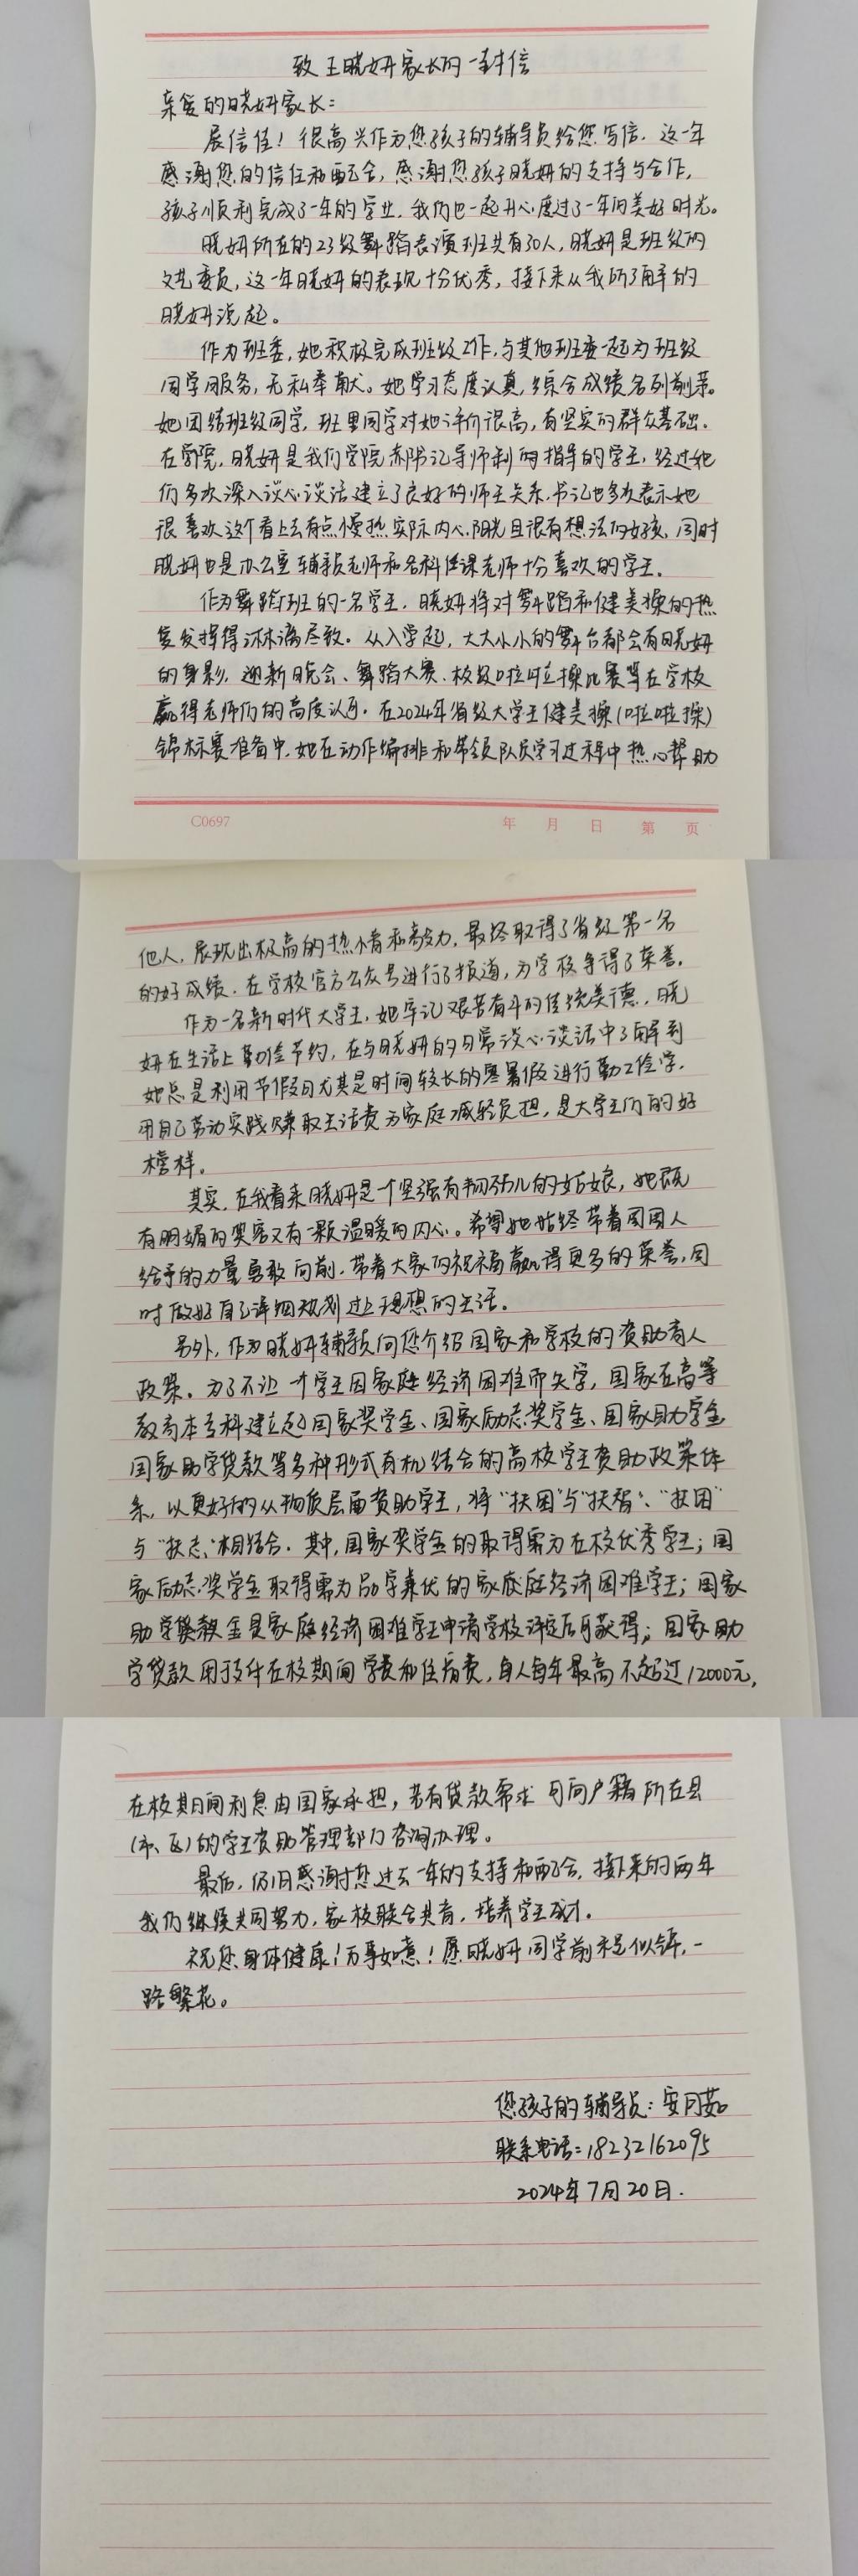 致王晓妍家长的一封信
亲爱的晓妍家长：
展信佳！很高兴作为您孩子的辅导员给您写信。这一年
感谢您的信任和配合，感谢您孩子晓妍的支持与合作，
孩子顺利完成了一年的学业，我们也一起开心度过了一年的美好时光。
晓妍所在的23级舞蹈表演班共有30人，晓妍是班级的
文艺委员，这一年晓妍的表现十分优秀，接下来从我所了解的
晓妍说起。
作为班委，她积极完成班级工作，与其他班委一起为班级
同学服务，无私奉献。她学习态度认真，综合成绩名列前茅。
她团结班级同学，班里同学对她评价很高，有坚实的群众基础。
在学院，晓妍是我们学院书记导师制指导的学生，经过他
们多次深入谈心谈话建立了良好的师生关系，书记也多次表示她
很喜欢这个看上去有点慢热实际内心阳光且很有想法的女孩，同时
晓妍也是办公室辅导员老师和各科任课老师十分喜欢的学生。
作为舞蹈班的一名学生，晓妍将对舞蹈和健美操的热
爱发挥得淋漓尽致。从入学起，大大小小的舞台都会有晓妍
的身影，迎新晚会、舞蹈大赛、校级啦啦操比赛等在学校
赢得老师们的高度认可。在2024年省级大学生健美操(啦啦操)
锦标赛准备中，她在动作编排和带领队员学习过程中热心帮助
C0697 年 月 日 第 页
他人，展现出极高的热情和毅力，最终取得了省级第一名
的好成绩，在学校官方公众号进行了报道，为学校争得了荣誉。
作为一名新时代大学生，她牢记艰苦奋斗的传统美德，晓
妍在生活上勤俭节约，在与晓妍的日常谈心谈话中了解到
她总是利用节假日尤其是时间较长的寒暑假进行勤工俭学，
用自己劳动实践赚取生活费为家庭减轻负担，是大学生们的好
榜样。
其实，在我看来晓妍是一个坚强有韧劲儿的姑娘，她既
有明媚的笑容又有一颗温暖的内心。希望她始终带着周围人
给予的力量勇敢向前，带着大家的祝福赢得更多的荣誉，同
时做好自己详细规划过上理想的生活。
另外，作为晓妍辅导员向您介绍国家和学校的资助育人
政策。为了不让一个学生因家庭经济困难而失学，国家在高等
教育本专科建立起国家奖学金、国家励志奖学金、国家助学金
国家助学贷款等多种形式有机结合的高校学生资助政策体
系，以更好的从物质层面资助学生，将“扶困”与“扶智”、“扶困”
与“扶志”相结合。其中，国家奖学金的取得需为在校优秀学生；国
家励志奖学金取得需为品学兼优的家庭经济困难学生；国家
助学金是家庭经济困难学生申请学校评定后可获得；国家助
学贷款用于支付在校期间学费和住宿费，每人每年最高不超过12000元，
在校期间利息由国家承担，若有贷款需求可向户籍所在县
(市、区)的学生资助管理部门咨询办理。
最后，仍旧感谢您过去一年的支持和配合，接下来的两年
我们继续共同努力，家校联合共育，培养学生成才。
祝您身体健康！万事如意！愿晓妍同学前程似锦，一
路繁花。
您孩子的辅导员：安同茹
联系电话：18232162095
2024年7月20日.